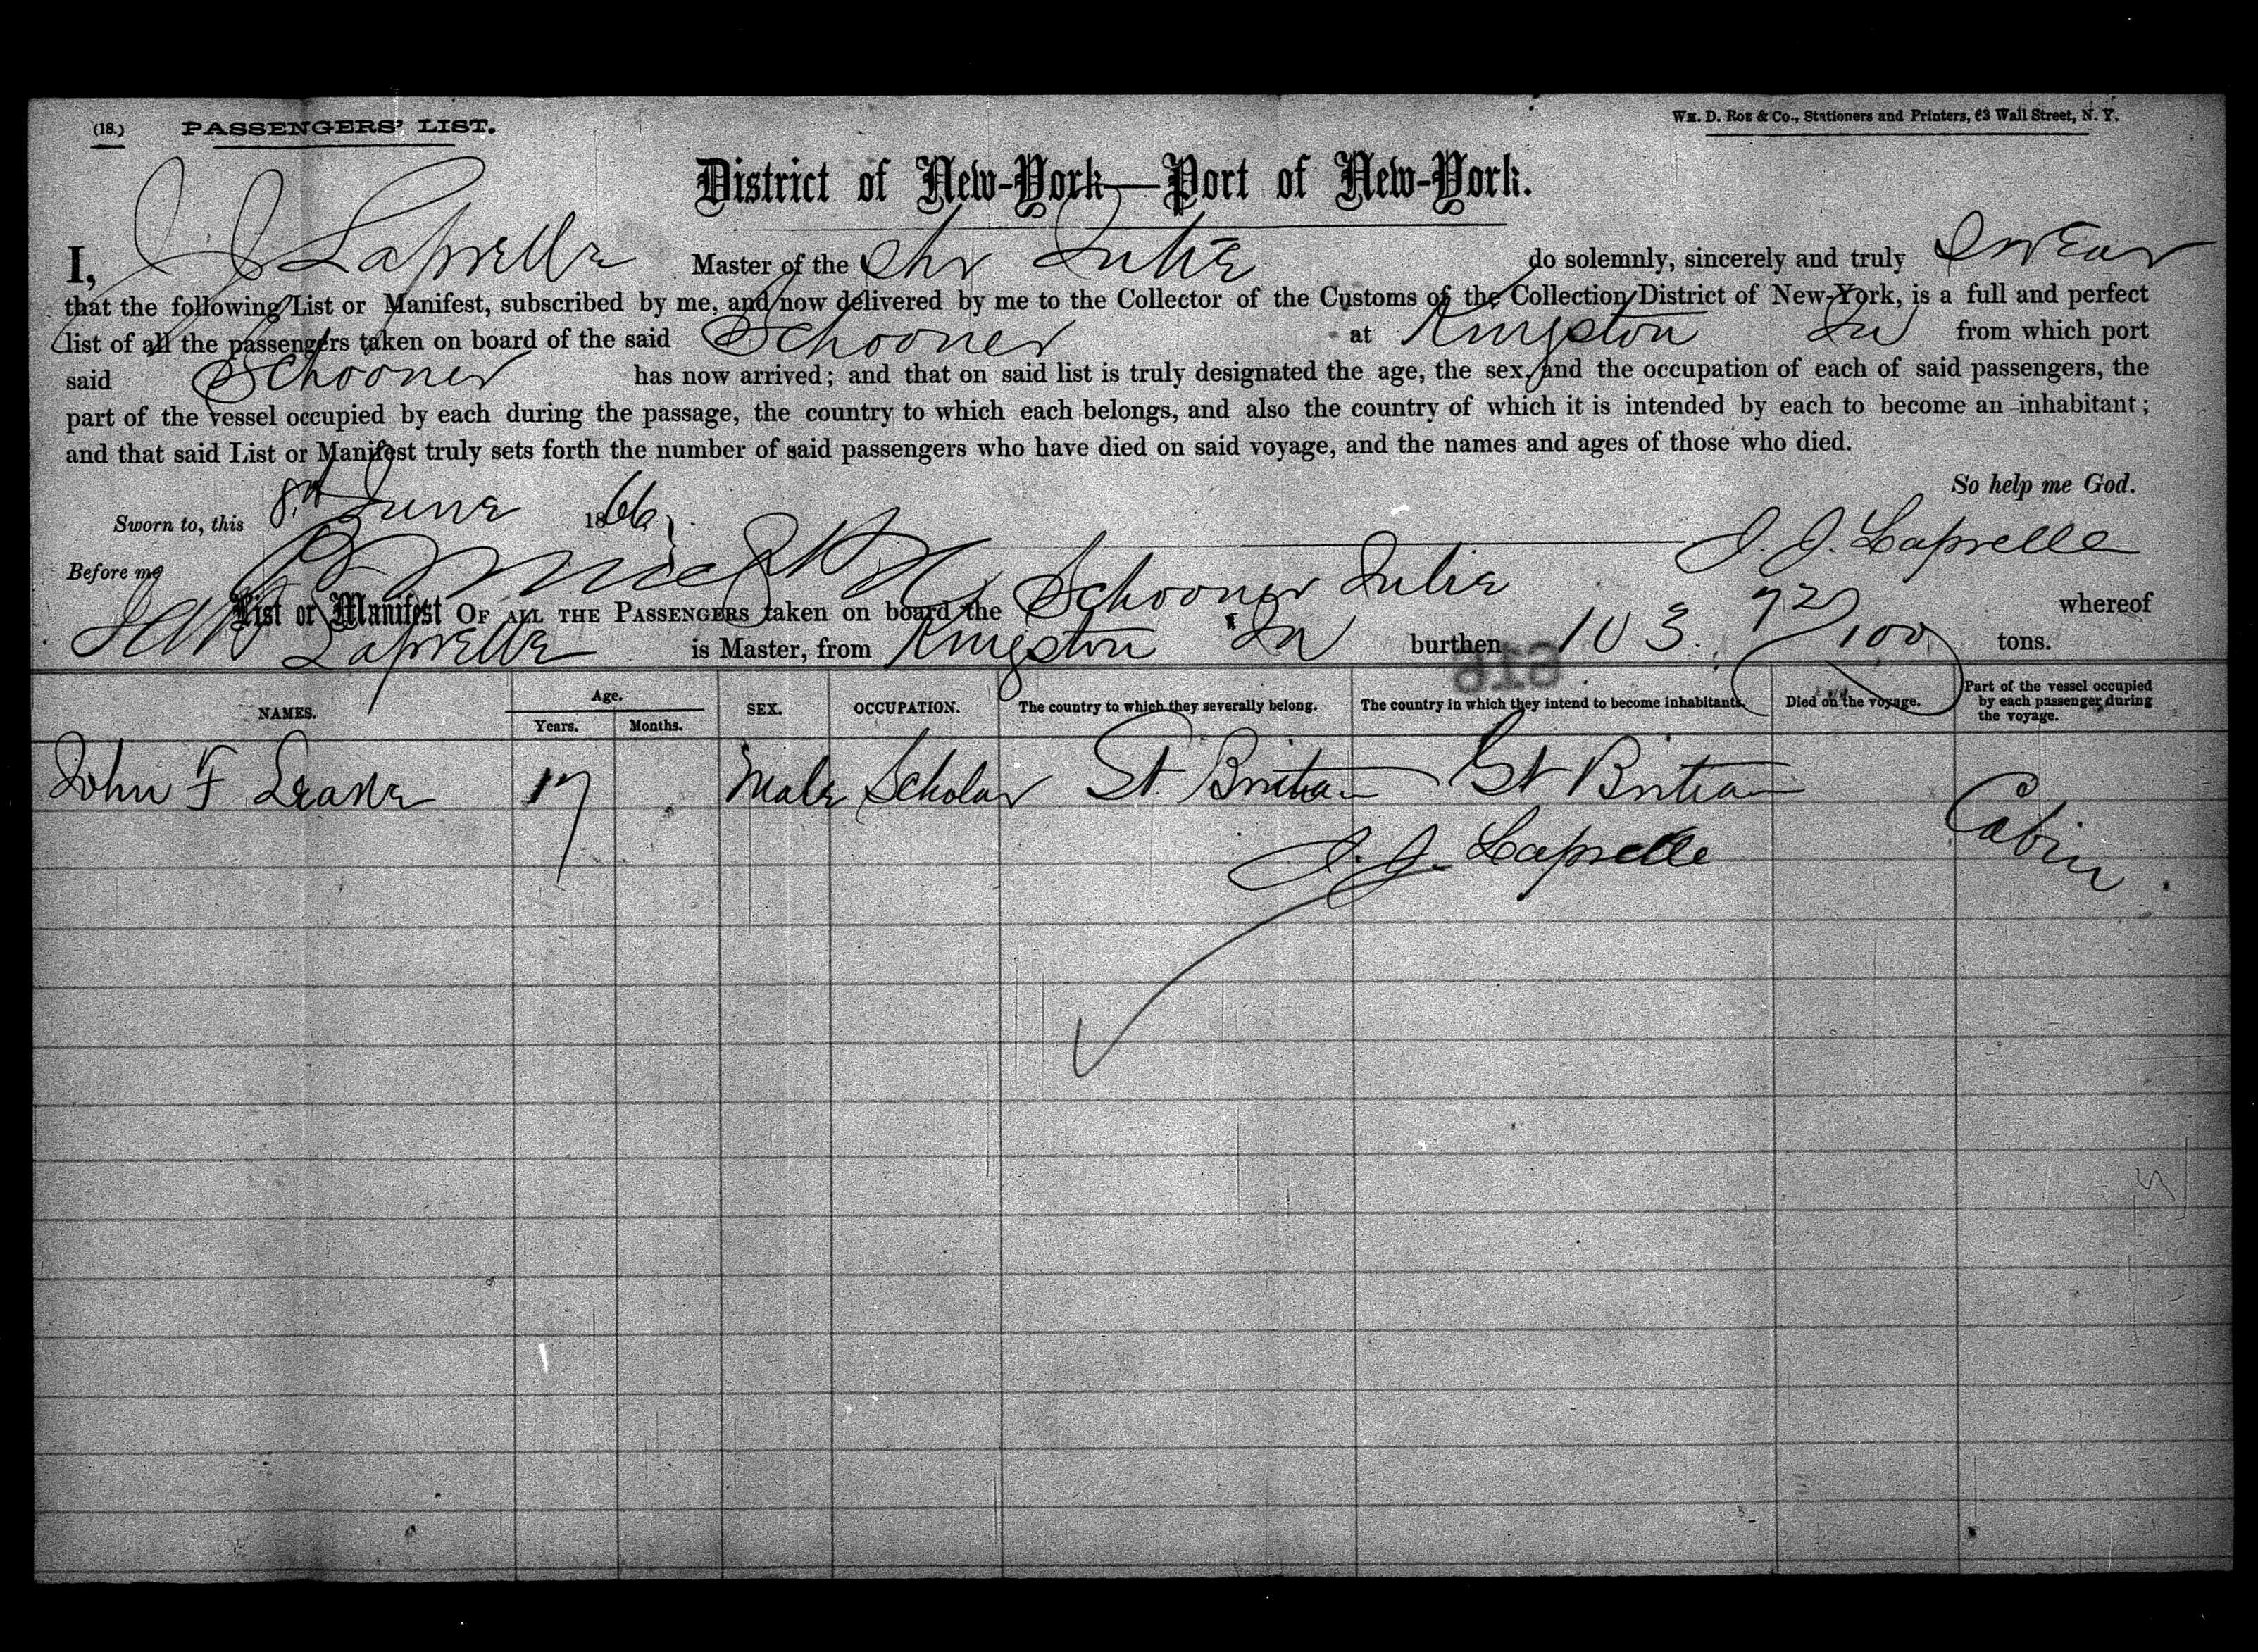 (18.) PASSENGERS' LIST.
Wm. D. Roe & Co., Stationers and Printers, 63 Wall Street, N. Y.
District of New-York—Port of New-York.
I, J J Laprelle Master of the Schr Julia do solemnly, sincerely and truly swear
that the following List or Manifest, subscribed by me, and now delivered by me to the Collector of the Customs of the Collection District of New-York, is a full and perfect
list of all the passengers taken on board of the said Schooner at Kingston Ja from which port
said Schooner has now arrived; and that on said list is truly designated the age, the sex, and the occupation of each of said passengers, the
part of the vessel occupied by each during the passage, the country to which each belongs, and also the country of which it is intended by each to become an inhabitant;
and that said List or Manifest truly sets forth the number of said passengers who have died on said voyage, and the names and ages of those who died.
So help me God.
Sworn to, this 8th June 1866
J. J. Laprelle
Before me
List or Manifest OF ALL THE PASSENGERS taken on board the Schooner Julia whereof
Laprelle is Master, from Kingston Ja burthen 103. 72/100 tons.
919
NAMES. Age. Years. Months. SEX. OCCUPATION. The country to which they severally belong. The country in which they intend to become inhabitants. Died on the voyage. Part of the vessel occupied by each passenger during the voyage.
John F 17 Male Scholar Gt Britian Gt Britian Cabin
J. J. Laprelle